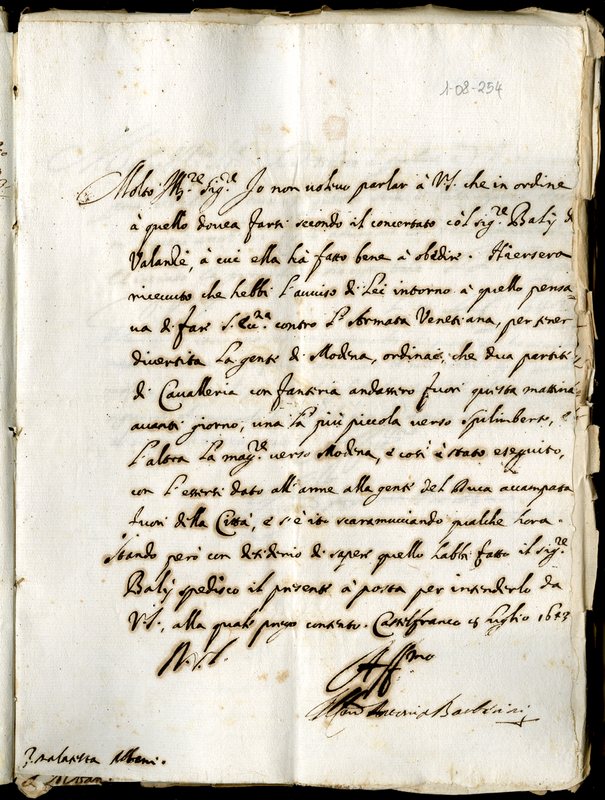 1-08-254
Molto Ill.re Sig.re Io non volevo parlar à V.S. che in ordine
à quello dovea farsi secondo il concertato col sig.re Balì di
Valanzè, à cui ella hà fatto bene à obedire. Hiersera
ricevuto che hebbi l'avviso di Lei intorno à quello pensa=
va di far S. Em.za contro l'Armata Venetiana, per tener
divertita la gente di Modena, ordinai, che due partite
di Cavalleria con fanteria andassero fuori questa mattina
avanti giorno, una la più piccola verso Spilimberto, e
l'altra la mag.re verso Modena, e così è stato eseguito,
con l'essersi dato all'arme alla gente del Duca accampata
fuori della Città, e s'è ito scaramucciando qualche hora.
Stando però con desiderio di saper quello habbi fatto il sig.re
Balì spedisco il presente à posta per intenderlo da
V.S., alla quale prego contento. Castelfranco Luglio 1643
D. V. S.
Aff.mo